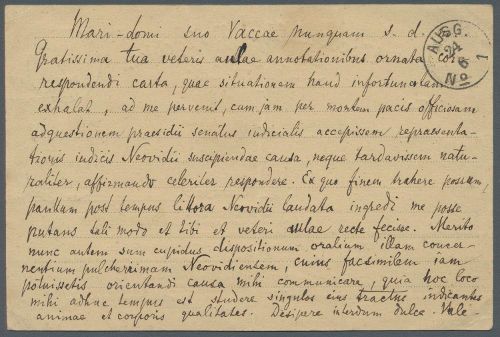 Mari-domi suo Vaccae nunquam s. d.
Gratissima tua veteris aulae annotationibus ornata cor-
respondendi carta, quae situationem haud infortunatam
exhalat, ad me pervenit, cum jam per montem pacis officiosam
adquestionem praesidii senatus iudicialis accepissem repraesenta-
tionis iudicis Neovidii suscipiendae causa, neque tardavissem natu-
raliter, affirmando celeriter respondere. Ex quo finem trahere possum,
paullum post tempus littora Neovidii laudata ingredi me posse
putans tali modo et tibi et veteri aulae recte fecisse. Merito
nunc autem sum cupidus dispositionum oralium illam concer-
nentium pulcherrimam Neovidientem, cuius facsimilem iam
potuissetis orientandi causa mihi communicare, quia hoc loco
mihi adhuc tempus est studere singulos eius tractus indicantes
animae et corporis qualitates. Desipere interdum dulce. Vale
AUSG.
24
6
1
No